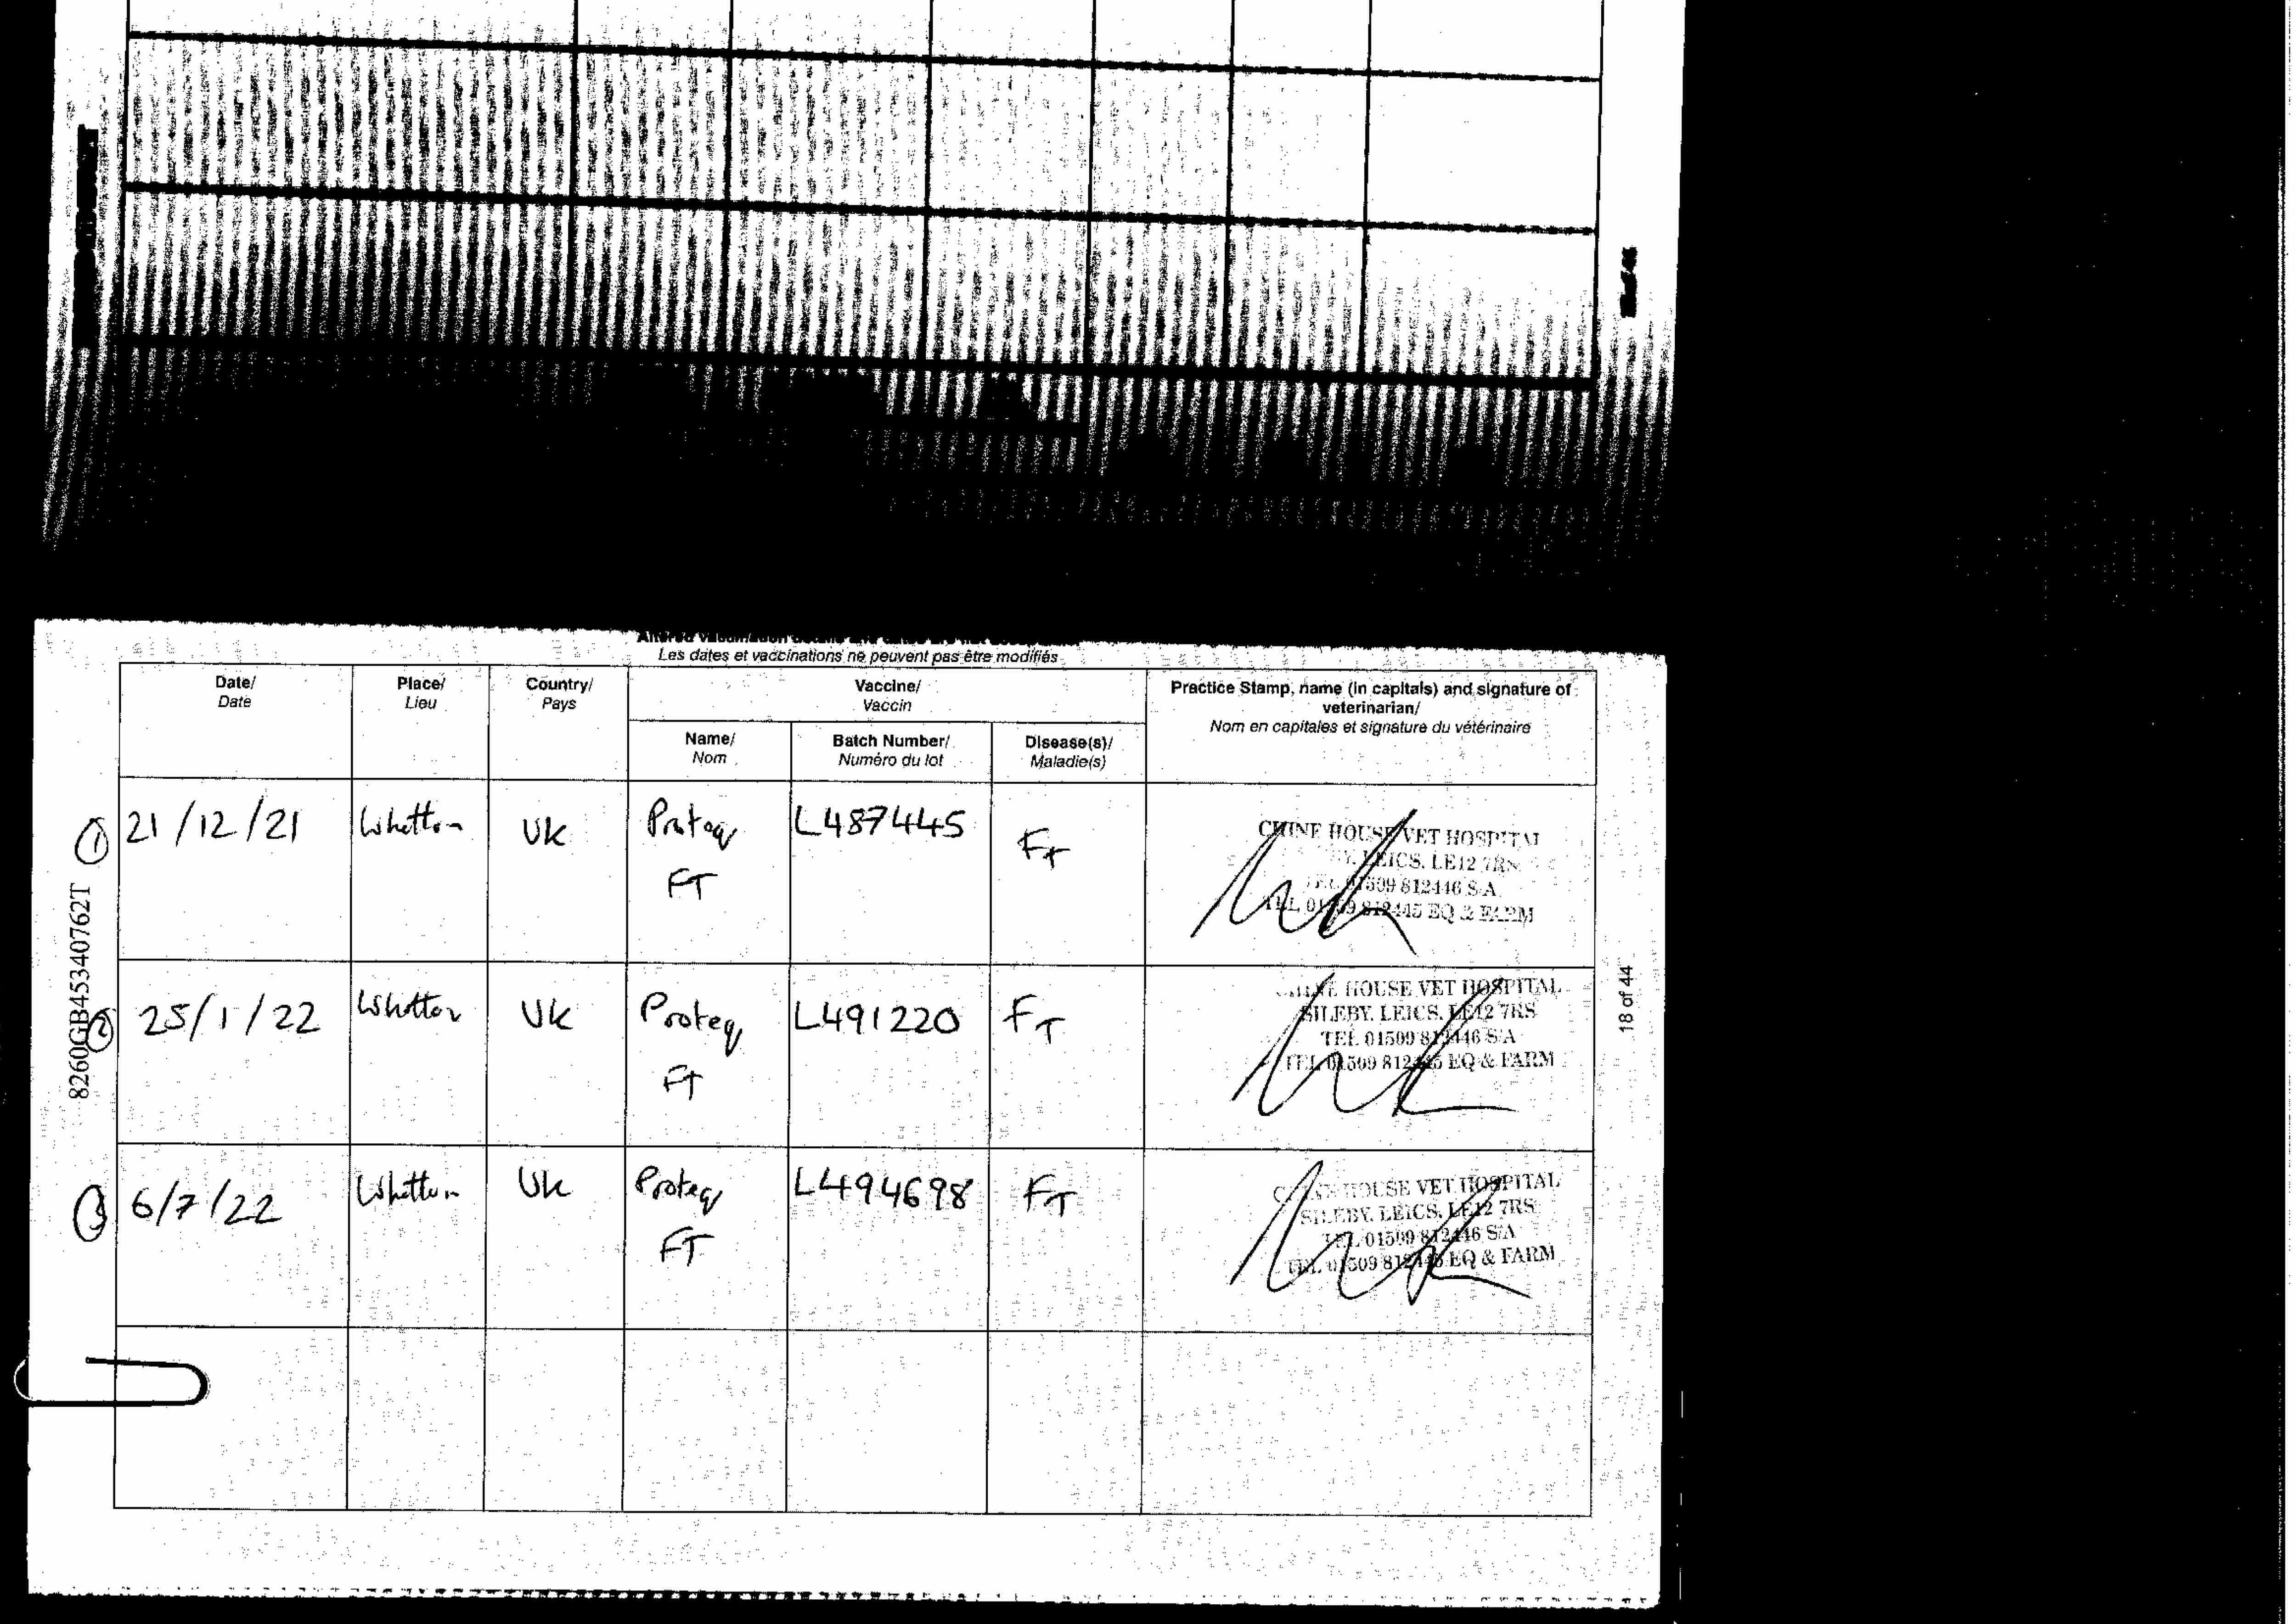 Les dates et vaccinations ne peuvent pas être modifiés
Date/
Date
Place/
Lieu
Country/
Pays
Vaccine/
Vaccin
Name/
Nom
Batch Number/
Numéro du lot
Disease(s)/
Maladie(s)
Practice Stamp, name (in capitals) and signature of
veterinarian/
Nom en capitales et signature du vétérinaire
① 21/12/21
UK
Proteq
FT
L487445
FT
CHINE HOUSE VET HOSPITAL
LEICS. LE12 7RS
01509 812446 S/A
TEL 01509 812445 EQ & FARM
② 25/1/22
UK
Proteq
FT
L491220
FT
CHINE HOUSE VET HOSPITAL
SILEBY. LEICS. LE12 7RS
TEL 01509 812446 S/A
TEL 01509 812445 EQ & FARM
③ 6/7/22
UK
Proteq
FT
L494698
FT
HOUSE VET HOSPITAL
SILEBY. LEICS. LE12 7RS
TEL 01509 812446 S/A
TEL 01509 812445 EQ & FARM
8260GB45340762T
18 of 44